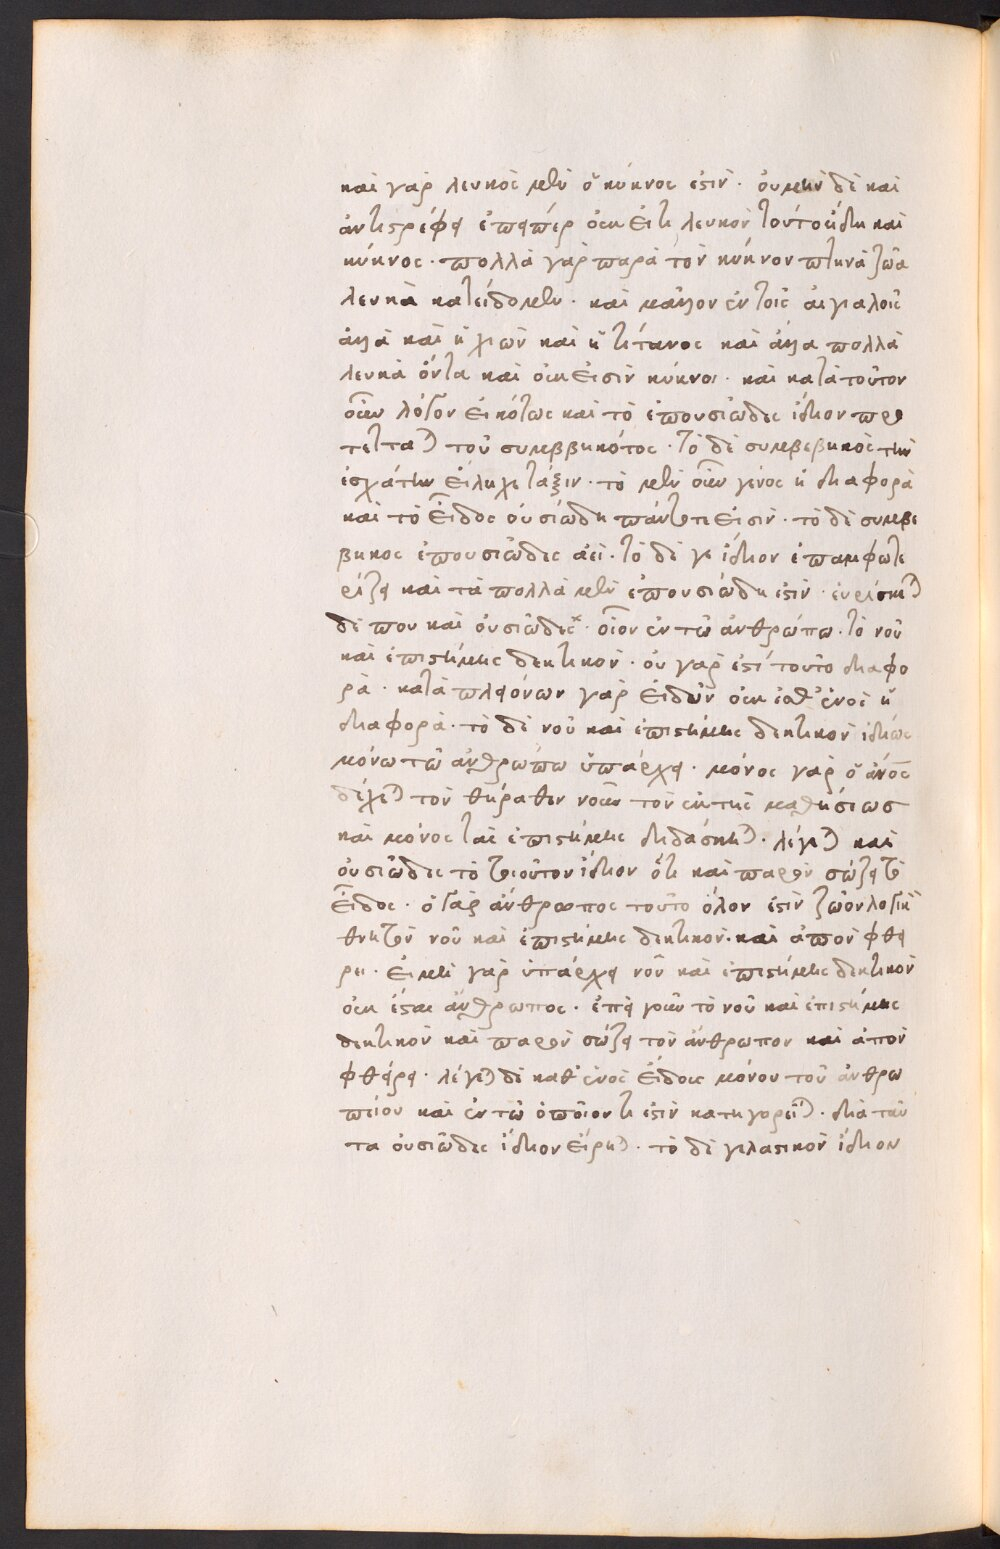 καὶ γὰρ λευκὸς μὲν ὁ κύκνος ἐστὶν· οὐ μὴν δὲ καὶ
ἀντιστρέφει ἐπειπὲρ οὐκ εἴτι λευκὸν τοῦτο εἴδη καὶ
κύκνος· πολλὰ γὰρ παρὰ τὸν κύκνον πτηνὰ ζῶα
λευκὰ κατείδομεν· καὶ μᾶλλον ἐν τοῖς αἰγιαλοῖς
ἀλλὰ καὶ ἡ χιὼν καὶ ἡ τίτανος καὶ ἄλλα πολλὰ
λευκὰ ὄντα καὶ οὐκ εἰσὶν κύκνοι· καὶ κατὰ τοῦτον
οὖν λόγον εἰκότως καὶ τὸ ἐπουσιῶδες ἴδιον προ
τέτταται τοῦ συμββηκότος· τὸ δὲ συμβεβηκὸς τὴν
ἐσχάτην εἴληχε τάξιν· τὸ μὲν οὖν γένος ἡ διαφορὰ
καὶ τὸ εἶδος οὐσιώδη πάντοτε εἰσὶν· τὸ δὲ συμβε
βηκος ἐπουσιῶδες ἀεὶ· τὸ δέ γε ἴδιον ἐπαμφωτε
ρίζει καὶ τὰ πολλὰ μὲν ἐπουσιώδη ἐστὶν· ἑυρίσκεται
δέ που καὶ οὐσιῶδες· οἷον ἐν τῶ ἀνθρώπω· τὸ νοῦ
καὶ ἐπιστήμης δεκτικὸν· οὐ γάρ ἐστί τοῦτο διαφο
ρὰ· κατὰ πλειόνων γὰρ εἰδῶν οὐκ καθ' ἑνὸς ἡ
διαφορὰ· τὸ δὲ νοῦ καὶ ἐπιστήμης δεκτικὸν ἰδίως
μόνω τῶ ἀνθρώπω ὑπάρχει· μόνος γὰρ ὁ ἄνος
δέχεται τὸν θύραθεν νοῦν τὸν ἐκ τῆς μαθήσεως
καὶ μόνος τὰς ἐπιστήμης διδάσκεται· λέγεται καὶ
οὐσιῶδες τὸ τοιοῦτον ἴδιον ὅτι καὶ παρὸν σώζει τὸ
εἶδος· ὁ γὰρ ἄνθρωπος τοῦτο ὅλον ἐστὶν ζῶον λογικ
θνητὸν νοῦ καὶ ἐπιστήμης δεκτικὸν· καὶ ἀπὸν φθει
ρει· εἰ μὴ γὰρ ὑπάρχει νοῦ καὶ ἐπιστήμης δεκτικὸν
οὐκ ἔσται ἄνθρωπος· ἐπεὶ γοῦν τὸ νοῦ καὶ ἐπιστήμης
δεκτικὸν καὶ παρὸν σώζει τὸν ἄνθρωπον καὶ ἀπὸν
φθείρει· λέγεται δὲ καθ' ἑνὸς εἴδους μόνου τοῦ ἀνθρω
πείου καὶ ἐν τῶ ὁποῖον τί ἐστὶν κατηγορεῖται· διὰ ταῦ
τα οὐσιῶδες ἴδιον εἴρηται· τὸ δὲ γελαστικὸν ἴδιον